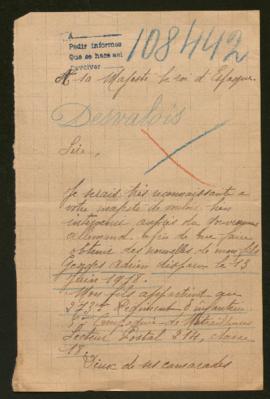 A
Pedir informes
Que se hara así
Devolver
108442
A sa Majesté le roi d'Espagne.
Desvalois
Sire,
Je serais très reconnaissant à
votre majesté de vouloir bien
intervenir auprès du Gouvernement
allemand afin de me faire
obtenir des nouvelles de mon fils
Georges Adrien disparu le 13
Juin 1918.
Mon fils appartient au
373e Régiment d'infanterie
Compagnie de Mitrailleuses
Secteur Postal 214, classe
18.
Ceux de ses camarades